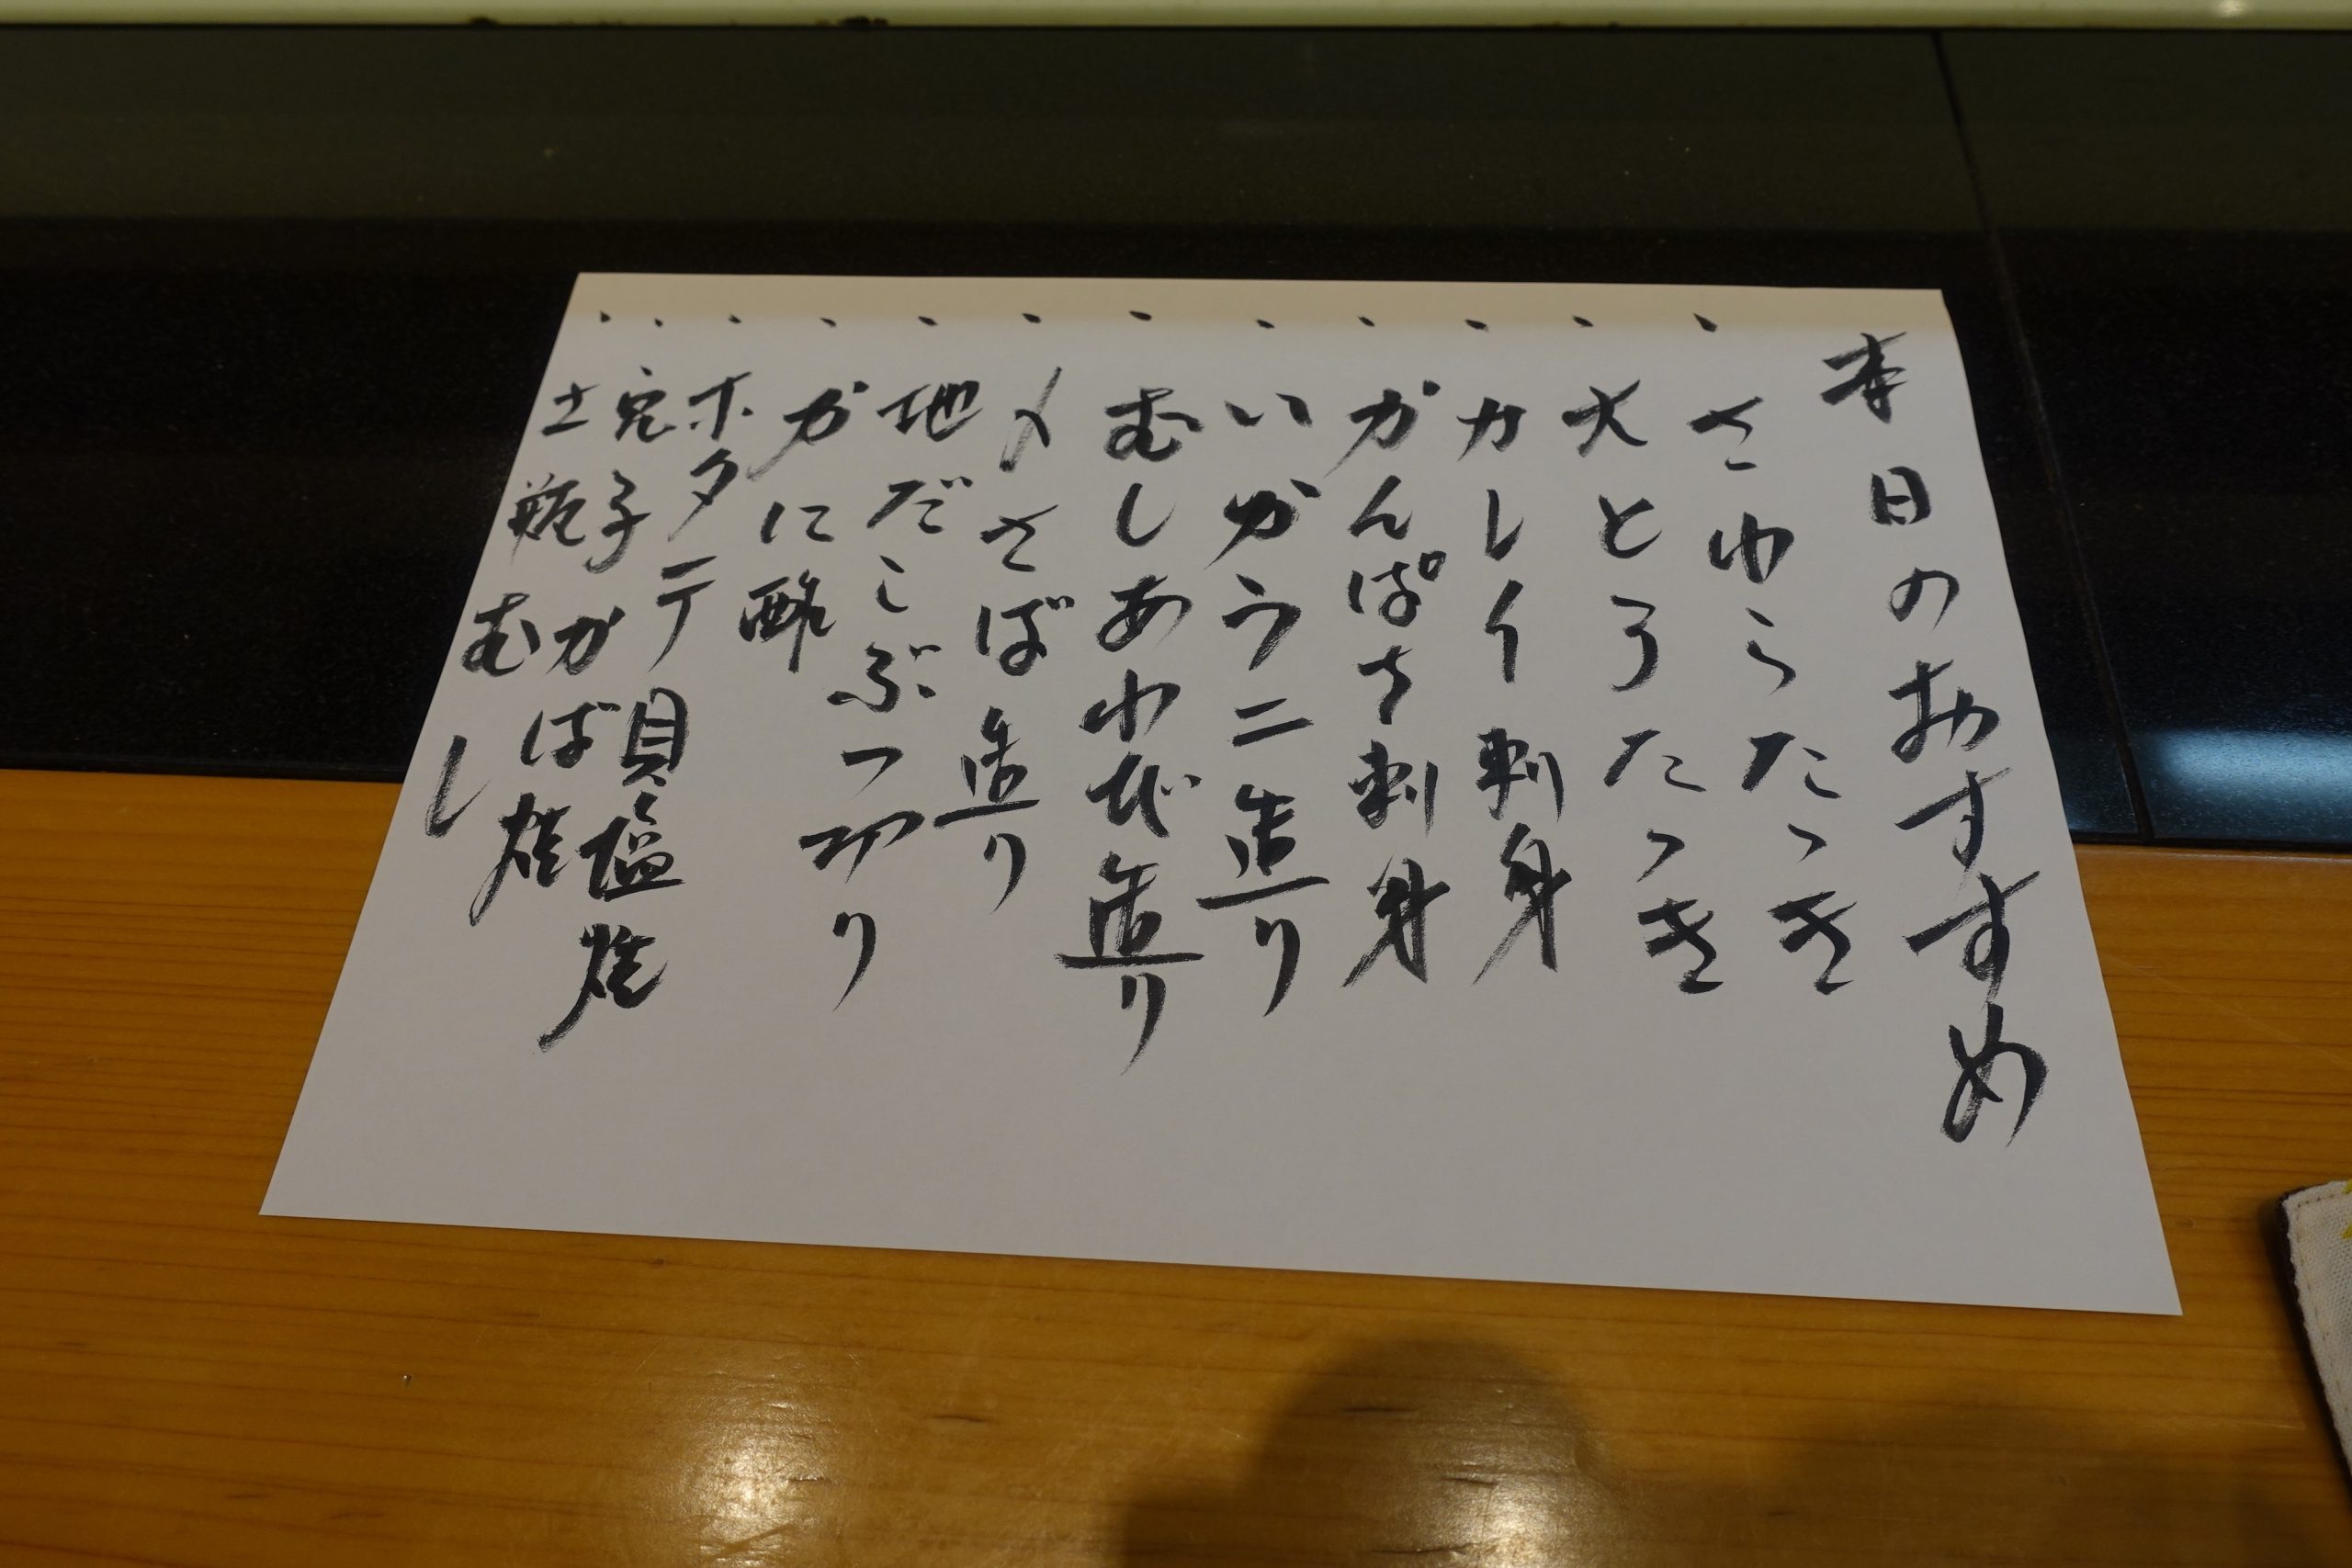 本日のおすすめ
、さわらたゝき
、大とろたゝき
、カレイ刺身
、かんぱち刺身
、いかウニ造り
、むしあわび造り
、〆さば造り
、地だこぶつ切り
、かに酢
、ホタテ貝塩焼
、穴子かば焼
、土瓶むし